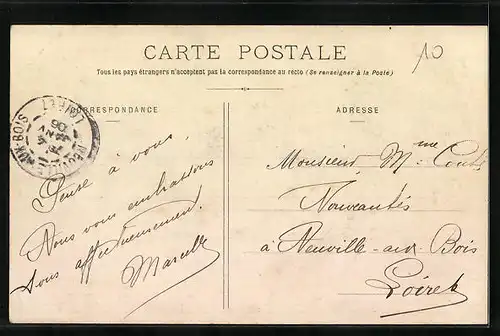 CARTE POSTALE
10
Tous les pays étrangers n'acceptent pas la correspondance au recto (Se renseigner à la Poste)
CORRESPONDANCE
ADRESSE
NEUVILLE-AUX-BOIS
LOIRET
Pense à vous.
Nous vous embrassons
tous affectueusement.
Marcelle
Monsieur Mme
Nouveautés
à Neuville-aux-Bois
Loiret